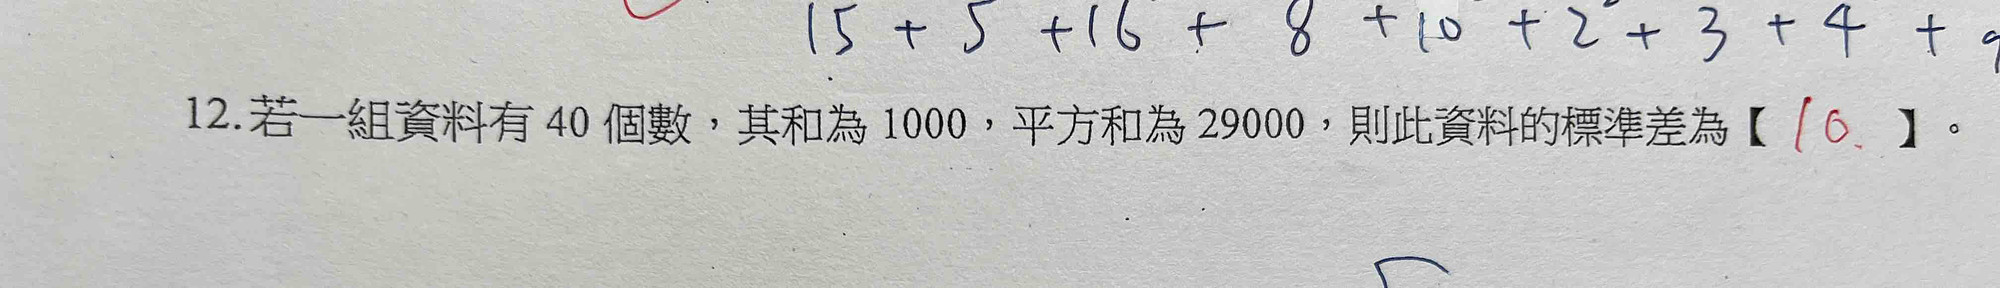 15 + 5 + 16 + 8 + 10 + 2 + 3 + 4 +
12. 若一組資料有 40 個數，其和為 1000，平方和為 29000，則此資料的標準差為【 10. 】。